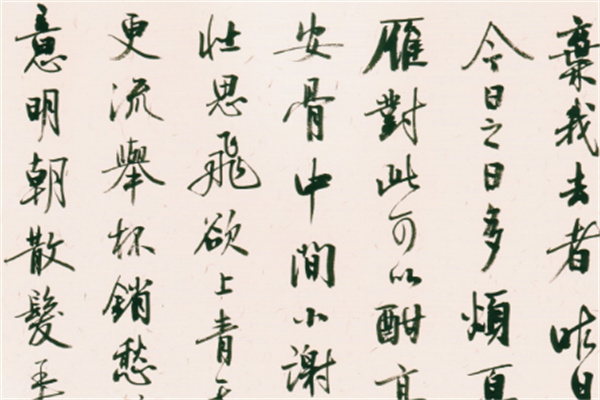 棄我去者昨日
今日之日多煩
雁對此可以酣高
安骨中間小謝
壯思飛欲上青
更流舉杯銷愁
意明朝散髮弄